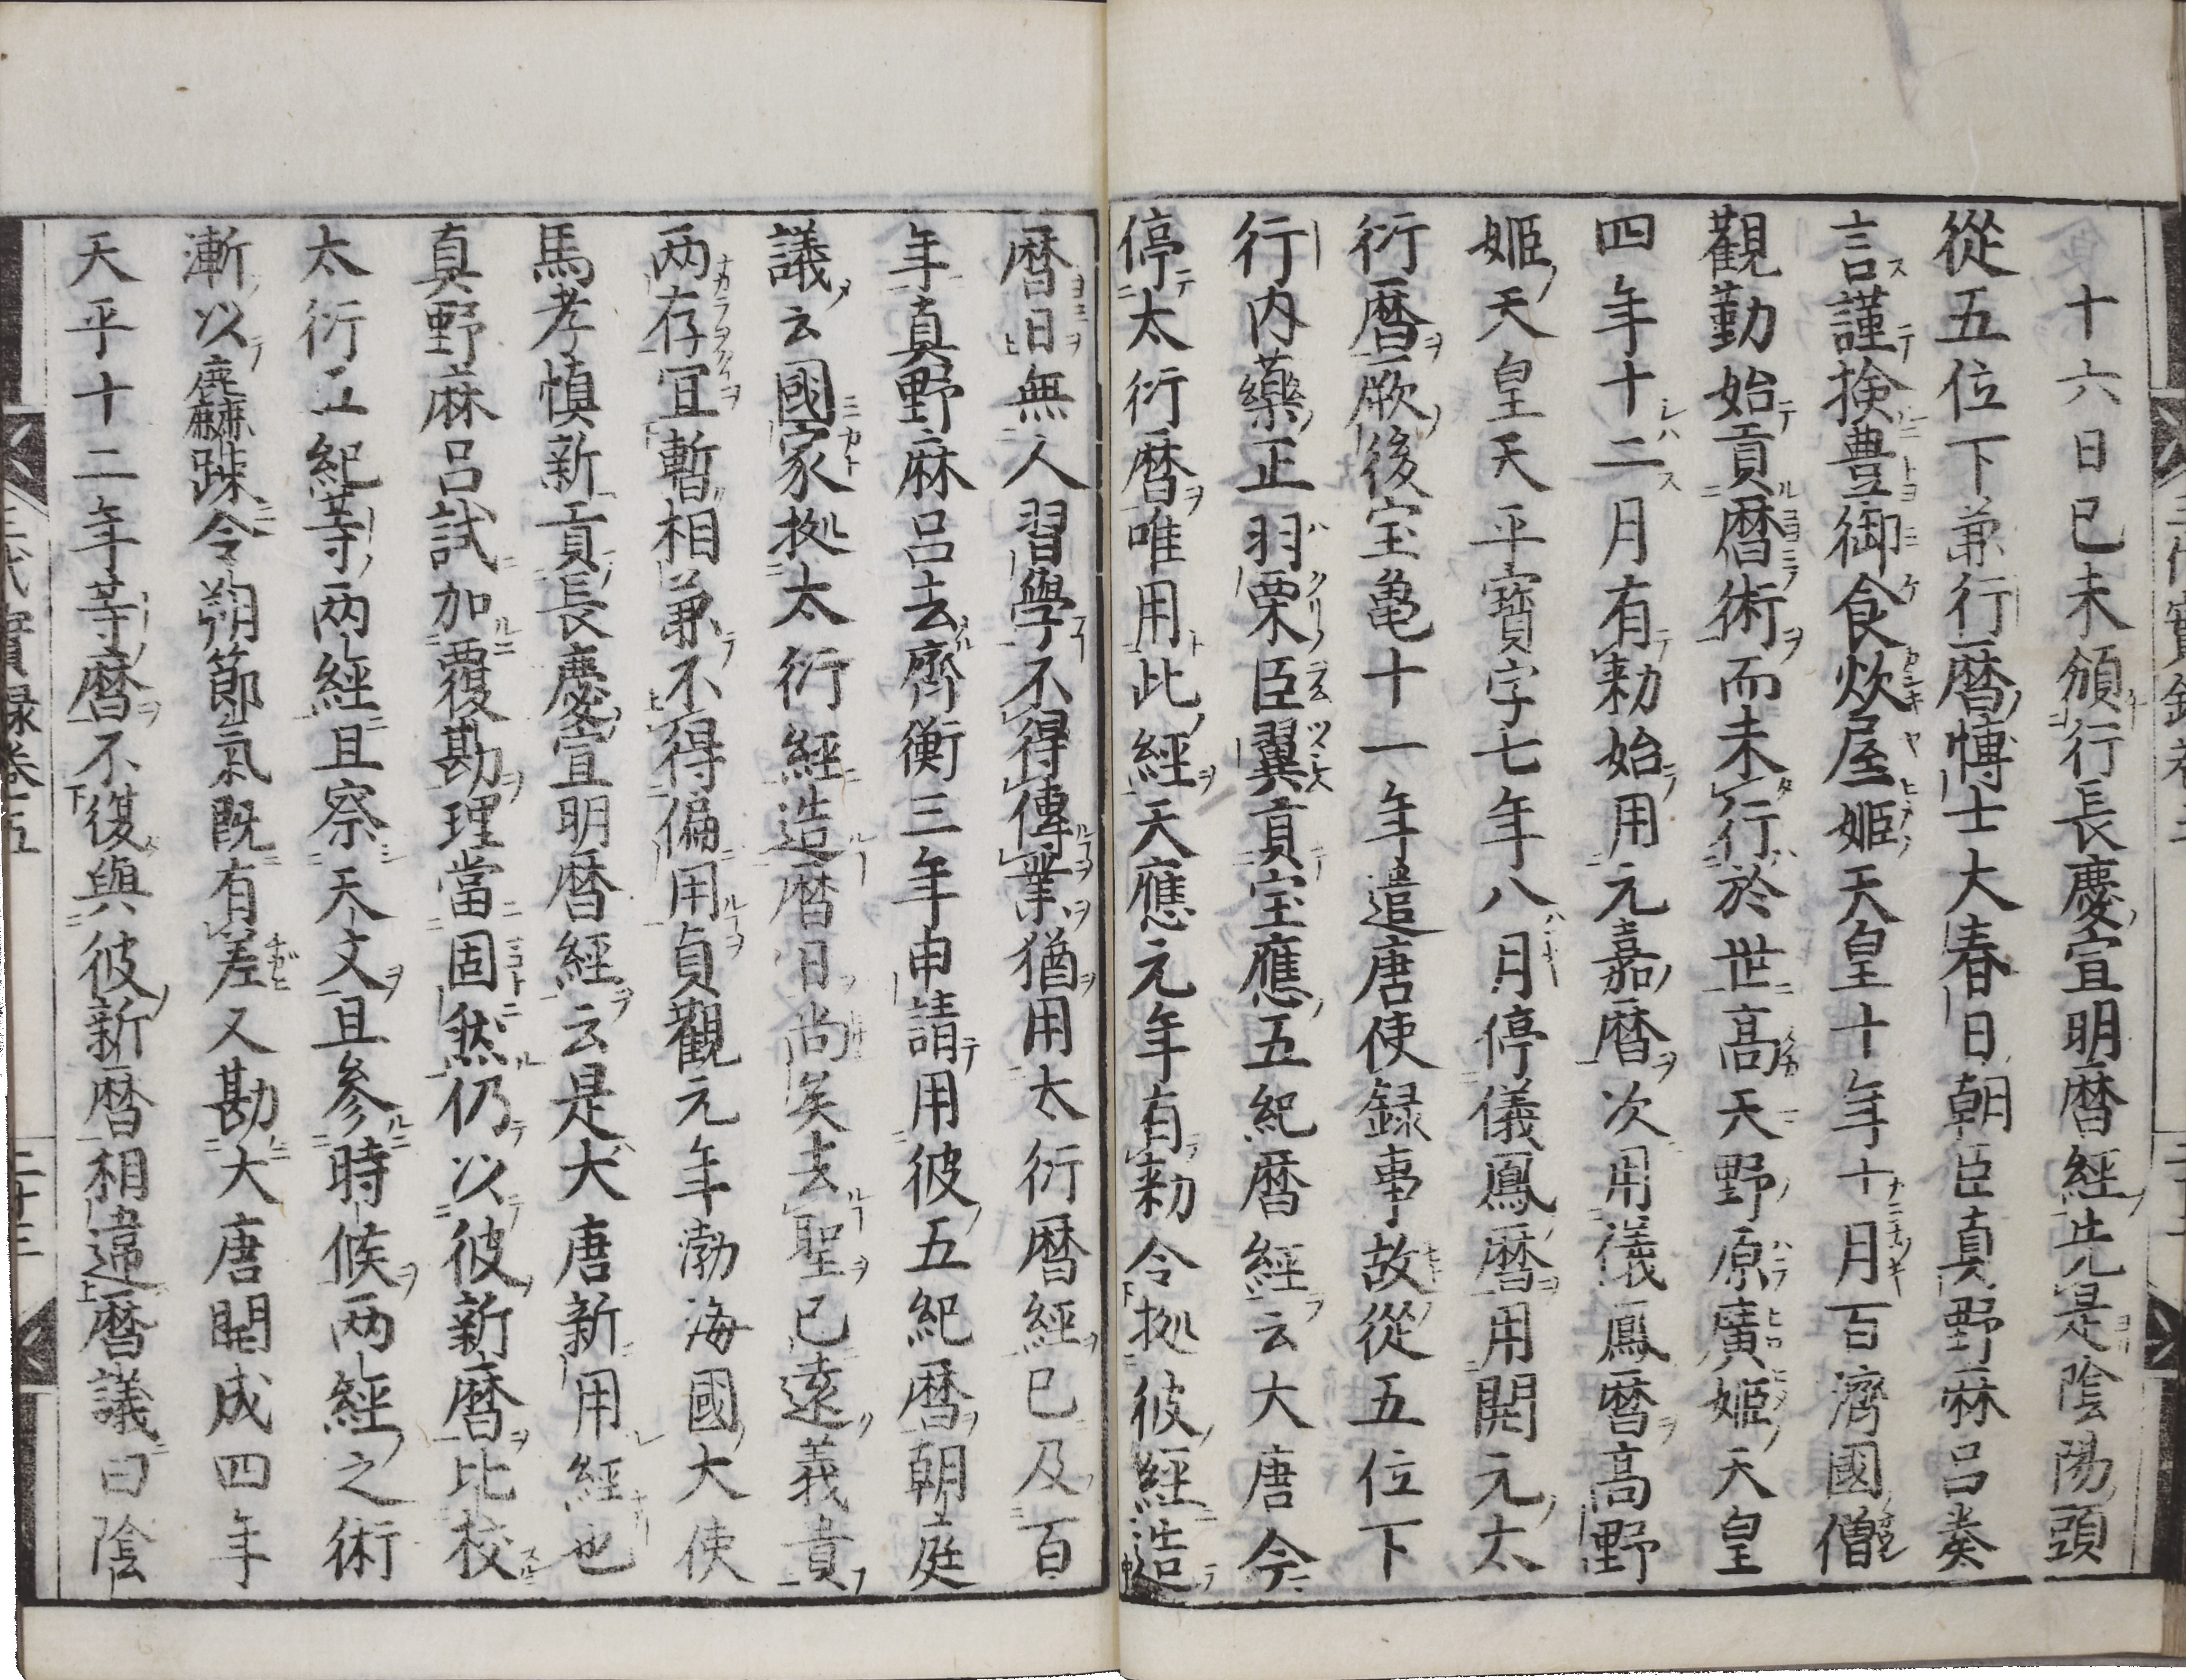 十六日己未頒行長慶宣明暦經先是陰陽頭
從五位下兼行暦博士大春日朝臣真野麻呂奏
言謹撿豊御食炊屋姫天皇十年十月百濟國僧
觀勤始貢暦術而未行於世高天野原廣姫天皇
四年十二月有勅始用元嘉暦次用儀鳳暦高野
姫天皇天平寶字七年八月停儀鳳暦用開元太
衍暦厥後宝亀十一年遣唐使録事故從五位下
行内藥正羽栗臣翼貢宝應五紀暦經云大唐今
停太衍暦唯用此經天應元年有勅令拠彼經造
暦日無人習學不得傳業猶用太衍暦經已及百
年真野麻呂去齊衡三年申請用彼五紀暦朝庭
議云國家拠太衍經造暦日尚矣去聖已遠義貴
两存宜暫相兼不得偏用貞觀元年渤海國大使
馬孝慎新貢長慶宣明暦經云是大唐新用經也
真野麻呂試加覆勘理當固然仍以彼新暦比校
太衍五紀等两經且察天文且參時候两經之術
漸以麁踈令朔節氣既有差又勘大唐開成四年
天平十二年等暦不復與彼新暦相違暦議曰陰